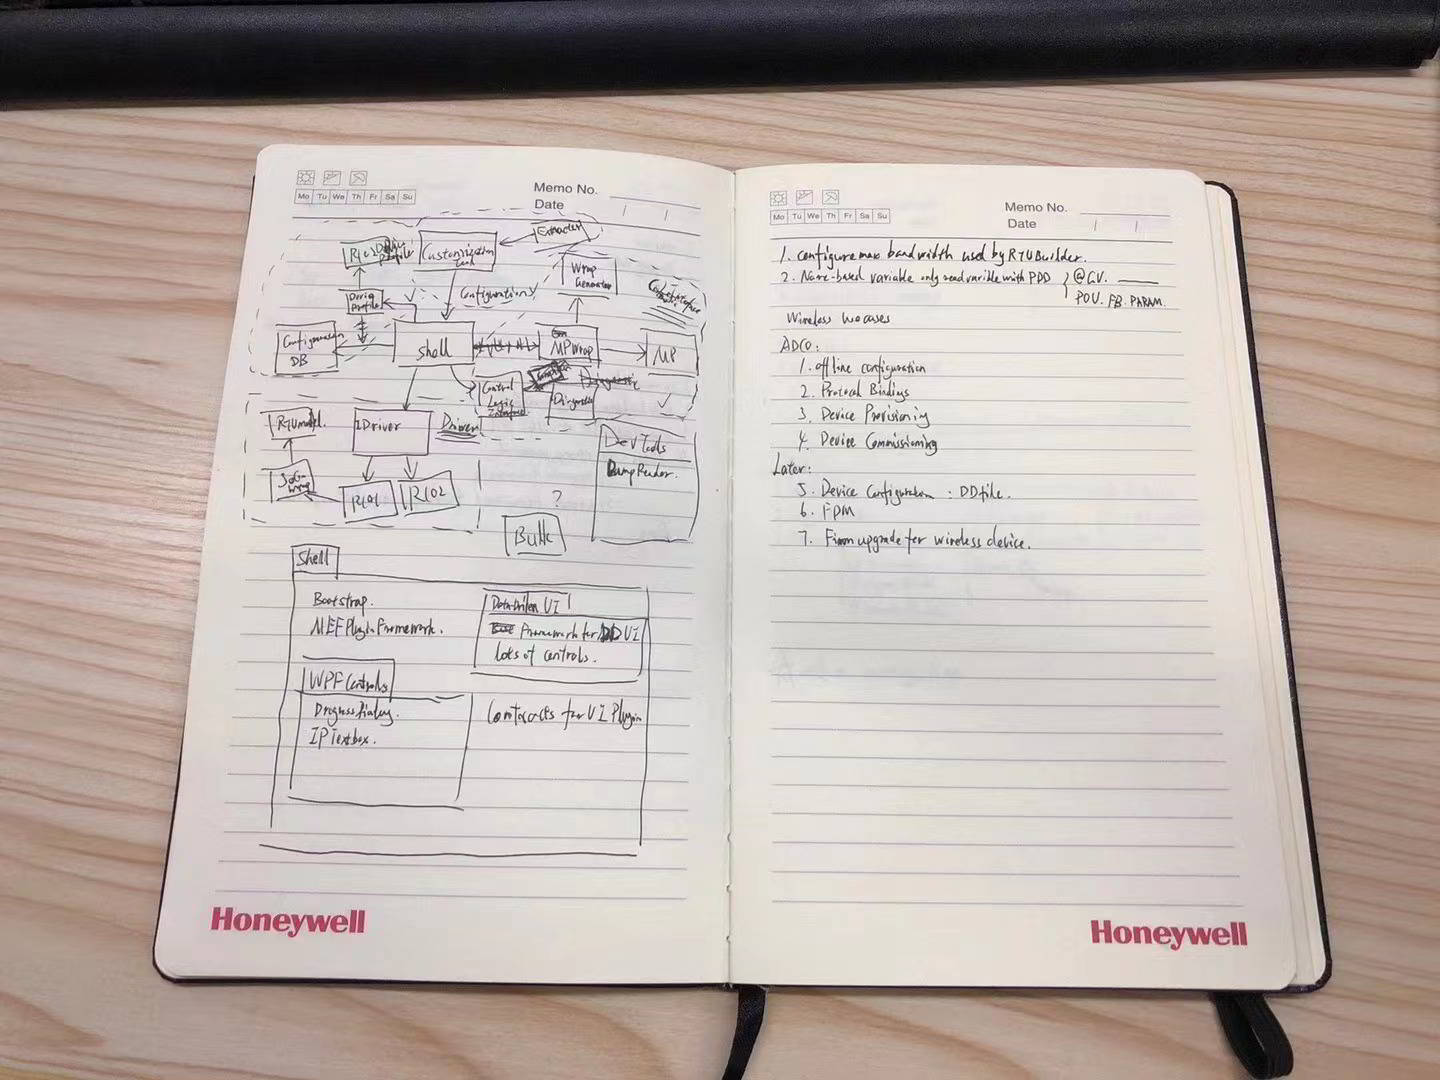 Memo No.
Mo Tu We Th Fr Sa Su
Date
Extractor
Customization
Wrap
Generator
Configuration
Profile
Configuration
DB
Shell
MP Wrap
MP
Control
Logic
Interface
RTU model.
IDriver
Driver
DevTools
DumpReader.
RIO1
RIO2
?
Bulk
Shell
Bootstrap.
MEF Plugin Framework.
Data-Driven UI
Framework for DD UI
lots of controls.
WPF Controls
Progress Dialog.
IP Textbox.
Contracts for UI Plugin
Honeywell
Memo No.
Mo Tu We Th Fr Sa Su
Date
1. Configure max bandwidth used by RTUBuilder.
2. Name-based variable only read varible with PDD
@GV.
POU. FB. PARAM.
Wireless
ADCO:
1. offline configuration
2. Protocol Bindings
3. Device Provisioning
4. Device Commissioning
Later:
5. Device Configuration : DD file.
6. FDM
7. Firm upgrade for wireless device.
Honeywell